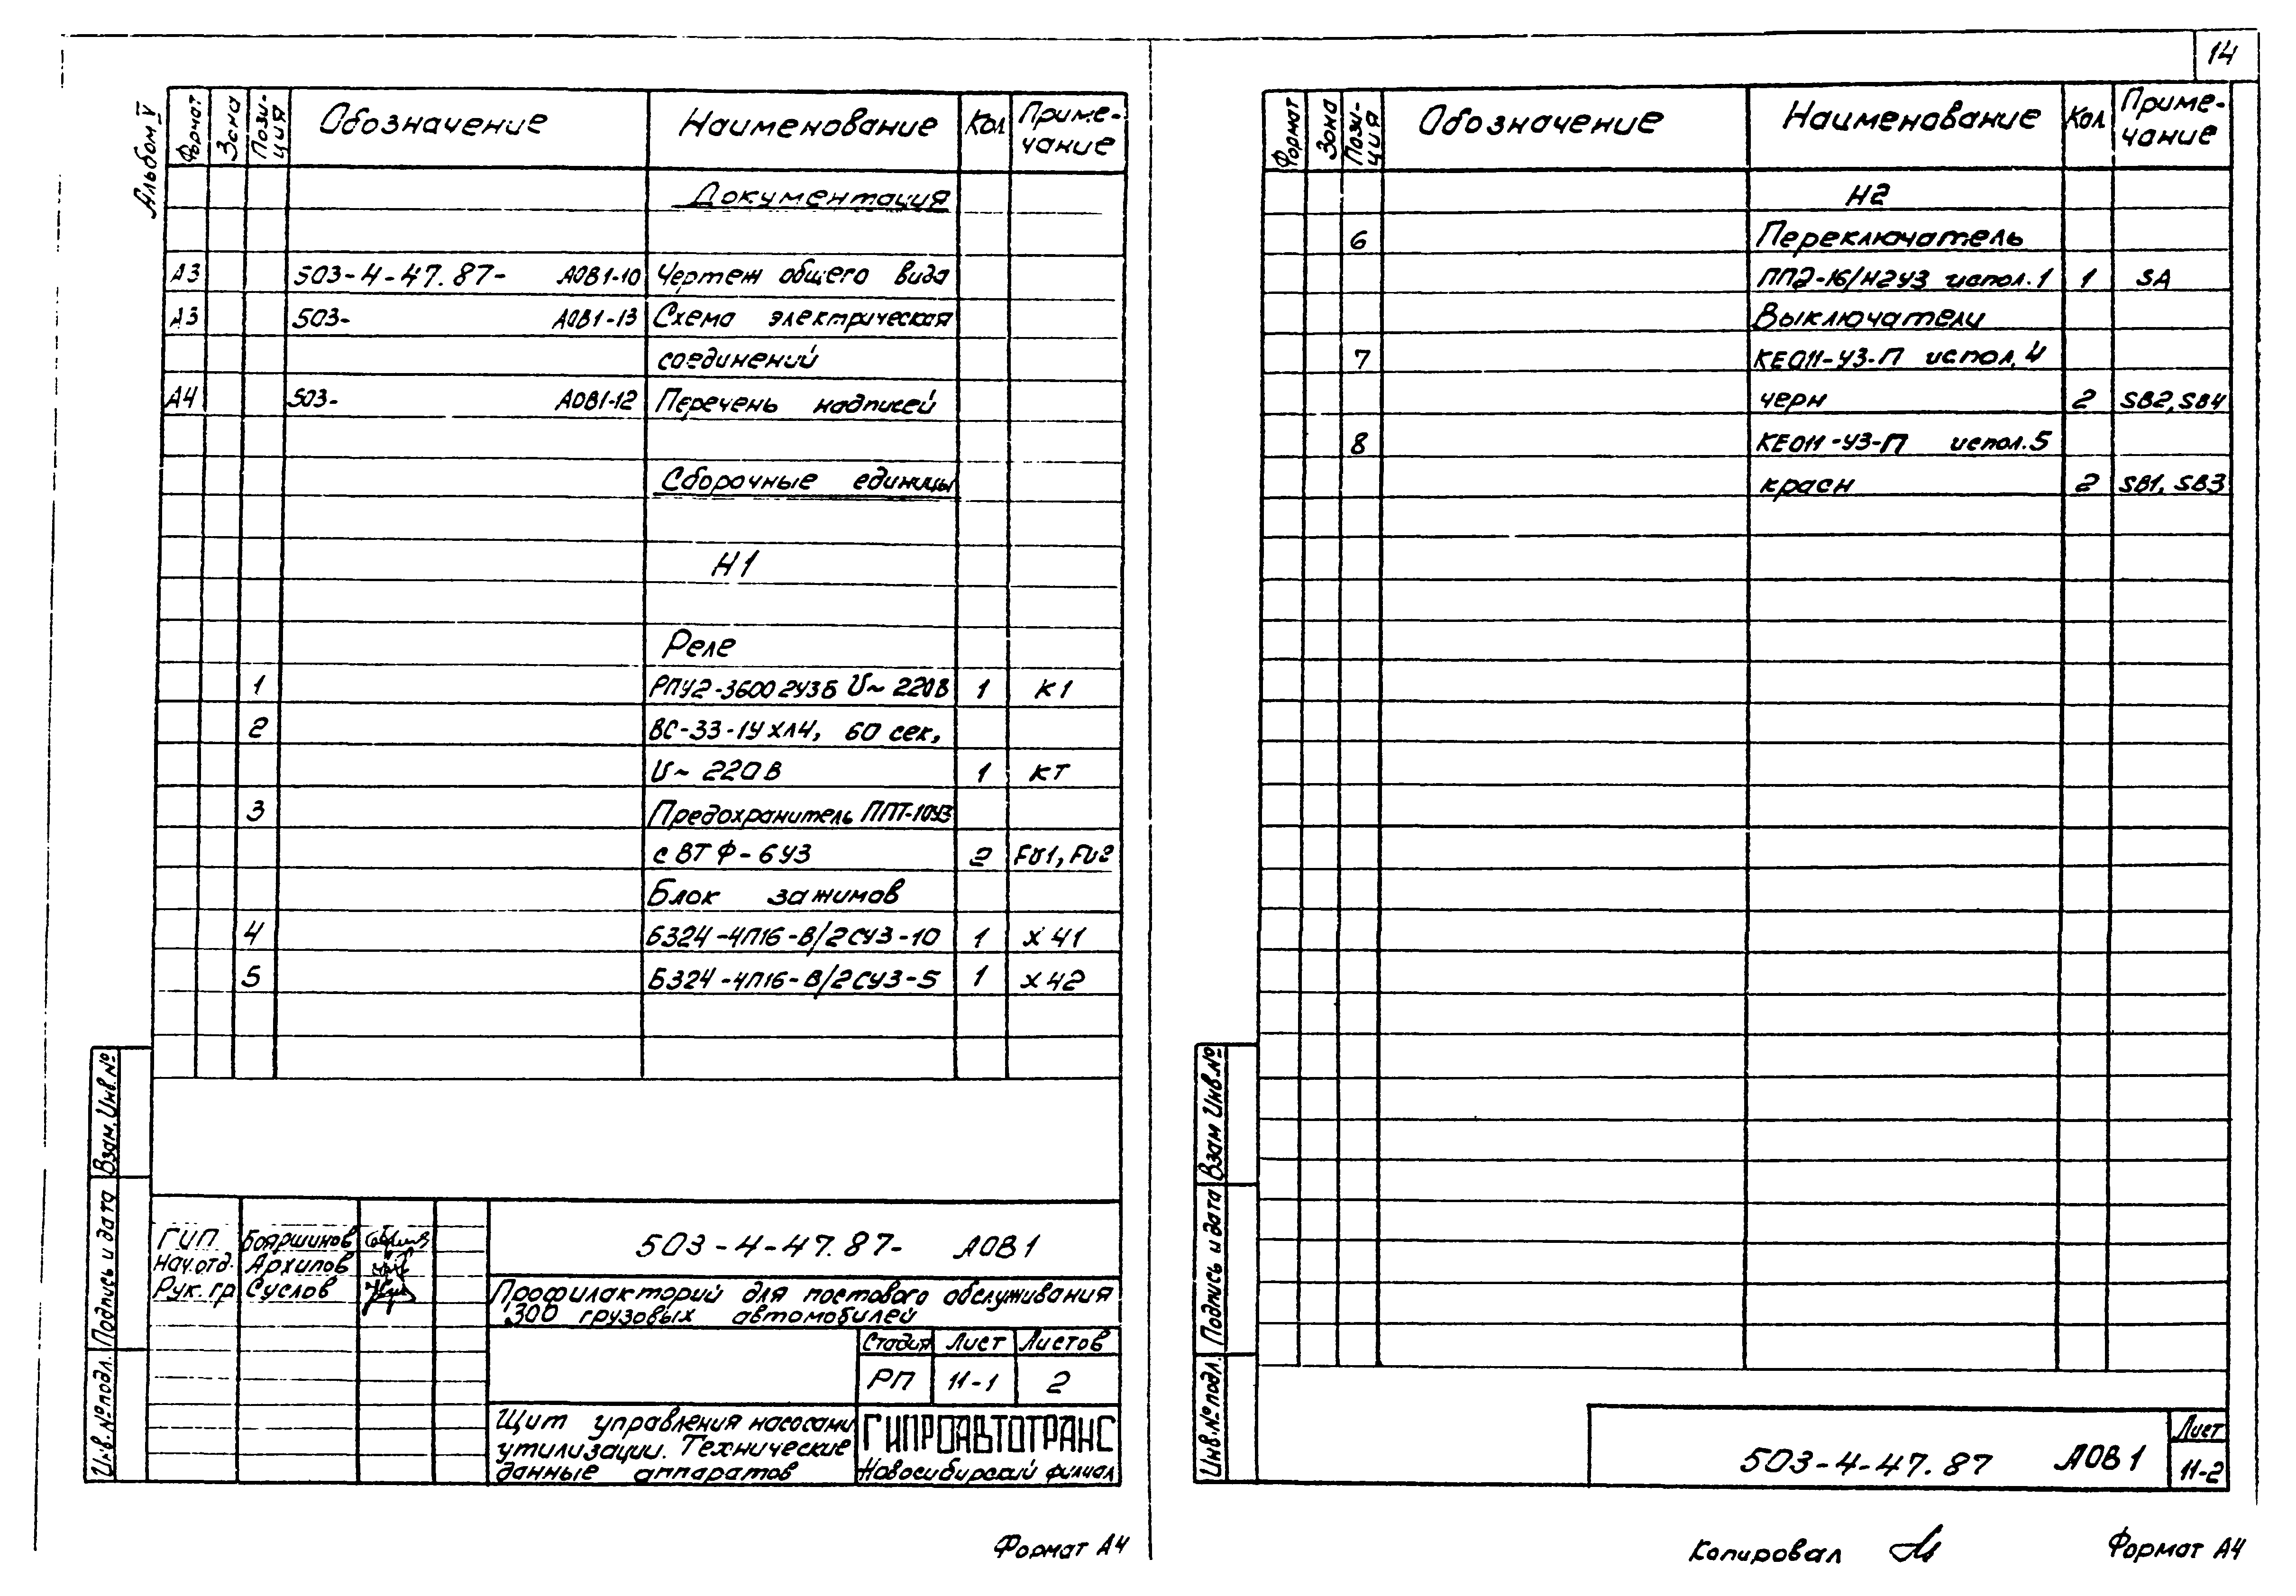 14
Альбом V
Формат Зона Пози-ция Обозначение Наименование Кол Приме-чание
Документация
А3 503-4-47.87- АОВ1-10 Чертеж общего вида
А3 503- АОВ1-13 Схема электрическая
соединений
А4 503- АОВ1-12 Перечень надписей
Сборочные единицы
Н1
Реле
1 РПУ2-36002У3Б U~ 220В 1 К1
2 ВС-33-1УХЛ4, 60 сек,
U~ 220В 1 КТ
3 Предохранитель ППТ-10У3
с ВТФ-6У3 2 FU1, FU2
Блок зажимов
4 Б324-4П16-В/2СУ3-10 1 Х41
5 Б324-4П16-В/2СУ3-5 1 Х42
Взам. Инв. №
Подпись и дата
Инв. № подл.
ГИП Бояршинов
Нач. отд. Архипов
Рук. гр Суслов
503-4-47.87- АОВ1
Профилакторий для постового обслуживания
300 грузовых автомобилей
Стадия Лист Листов
РП 11-1 2
Щит управления насосами
утилизации. Технические
данные аппаратов
ГИПРОАВТОТРАНС
Новосибирский филиал
Формат А4
Формат Зона Пози-ция Обозначение Наименование Кол Приме-чание
Н2
6 Переключатель
ПП2-16/Н2У3 испол. 1 1 SA
Выключатели
7 КЕ011-У3-П испол. 4
черн 2 SB2, SB4
8 КЕ011-У3-П испол. 5
красн 2 SB1, SB3
Взам Инв. №
Подпись и дата
Инв. № подл.
503-4-47.87 АОВ1
Лист
11-2
Копировал
Формат А4